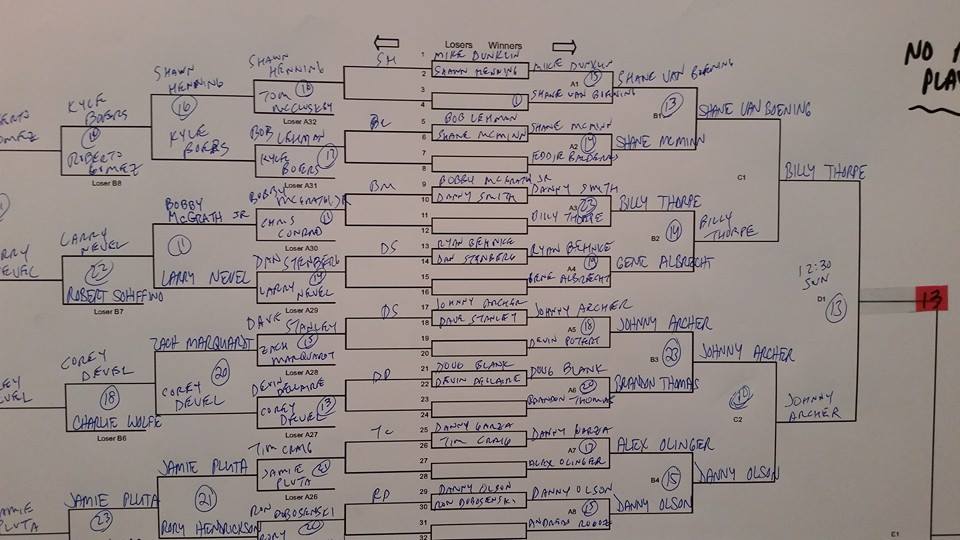 Losers Winners
NO
PLA
SHAWN HENNING
TOM McCLUSKEY
16
Loser A32
BOB LEHMAN
KYLE BOERS
17
Loser A31
BOBBY McGRATH JR
CHRIS CONRAD
11
Loser A30
DAN STENBERG
LARRY NEVEL
19
Loser A29
DAVE STANLEY
ZACH MARQUARDT
15
Loser A28
DEVIN DELLAIRE
COREY DEUEL
13
Loser A27
TIM CRAIG
JAMIE PLUTA
21
Loser A26
RON DOBOSENSKI
RORY
20
SHAWN HENNING
16
KYLE BOERS
BOBBY McGRATH JR
11
LARRY NEVEL
ZACH MARQUARDT
20
COREY DEUEL
JAMIE PLUTA
21
RORY HENDRICKSON
KYLE BOERS
16
ROBERTO GOMEZ
Loser B8
LARRY NEVEL
22
ROBERT SCHIFFINO
Loser B7
COREY DEUEL
18
CHARLIE WOLFE
Loser B6
JAMIE PLUTA
23
SH
BL
BM
DS
DS
DD
TC
RD
1 MIKE DUNKLIN
2 SHAWN HENNING
3
4 1
5 BOB LEHMAN
6 SHANE McMINN
7
8
9 BOBBY McGRATH JR
10 DANNY SMITH
11
12
13 RYAN BEHNKE
14 DAN STENBERG
15
16
17 JOHNNY ARCHER
18 DAVE STANLEY
19
20
21 DOUG BLANK
22 DEVIN DELLAIRE
23
24
25 DANNY GARZA
26 TIM CRAIG
27
28
29 DANNY OLSON
30 RON DOBOSENSKI
31
32
MIKE DUNKLIN
A1 15
SHANE VAN BOENING
SHANE McMINN
A2 19
EDDIE
DANNY SMITH
A3 23
BILLY THORPE
RYAN BEHNKE
A4 19
GENE ALBRECHT
JOHNNY ARCHER
A5 18
DEVIN POTEET
DOUG BLANK
A6 20
BRANDON THOMAS
DANNY GARZA
A7 17
ALEX OLINGER
DANNY OLSON
A8 15
ANDREW
SHANE VAN BOENING
B1 13
SHANE McMINN
BILLY THORPE
B2 19
GENE ALBRECHT
JOHNNY ARCHER
B3 23
BRANDON THOMAS
ALEX OLINGER
B4 15
DANNY OLSON
SHANE VAN BOENING
C1
BILLY THORPE
JOHNNY ARCHER
C2 10
DANNY OLSON
BILLY THORPE
12:30 SUN
D1 13
JOHNNY ARCHER
13
E1